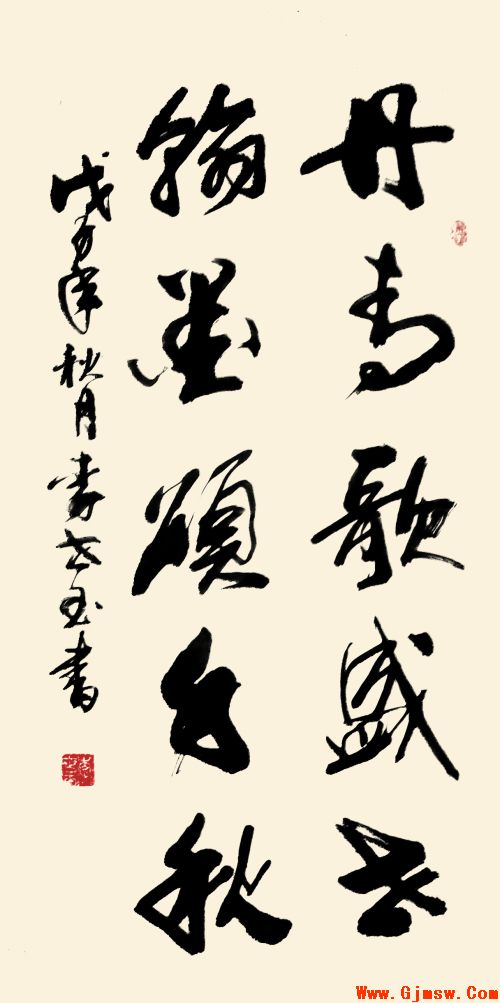 丹青歌盛世
翰墨頌千秋
戊子年秋月李世玉書
www.Gjmsw.Com